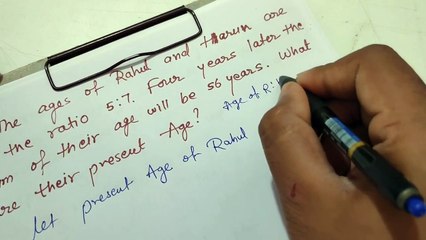 The ages of Rahul and Harun are
the ratio 5:7. Four years later the
m of their age will be 56 years. What
are their present Age?
Age of R:
let present Age of Rahul